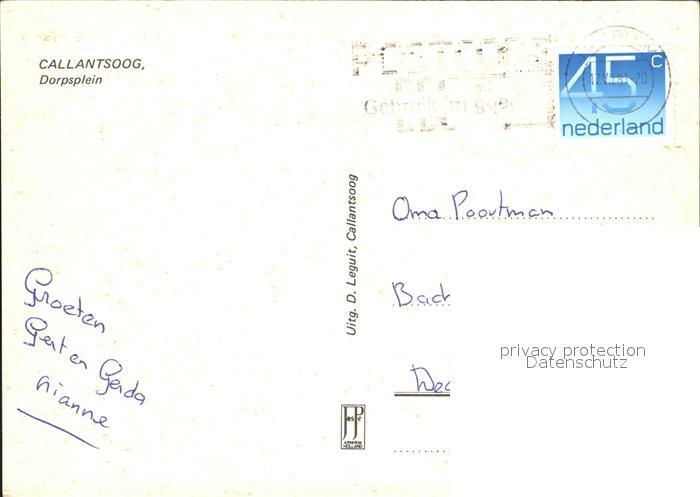 CALLANTSOOG,
Dorpsplein
POSTCODE
Gebruik 'm goed
45 C
nederland
Uitg. D. Leguit, Callantsoog
Oma Poortman
Groeten
Gert en Gerda
Nianne
JosPe
ARNHEM
HOLLAND
privacy protection
Datenschutz